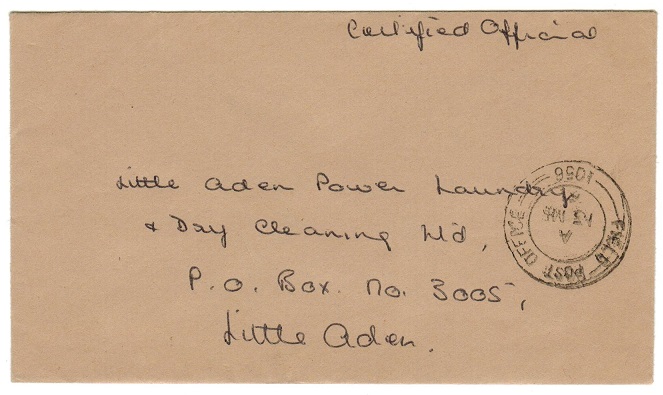 Certified Official
Little Aden Power Laundry
& Dry Cleaning Ltd,
P.O. Box. No. 3005,
Little Aden.
FIELD POST OFFICE
1056
A